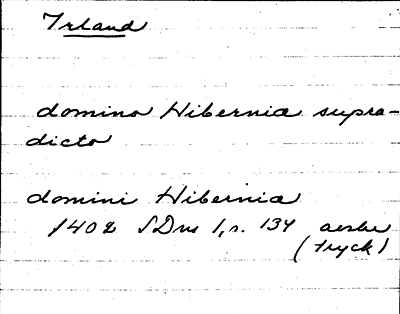 Irland
domino Hibernia supra-
dicto
domini Hibernia
1402 SDns 1, s. 134 avskr
(tryck)